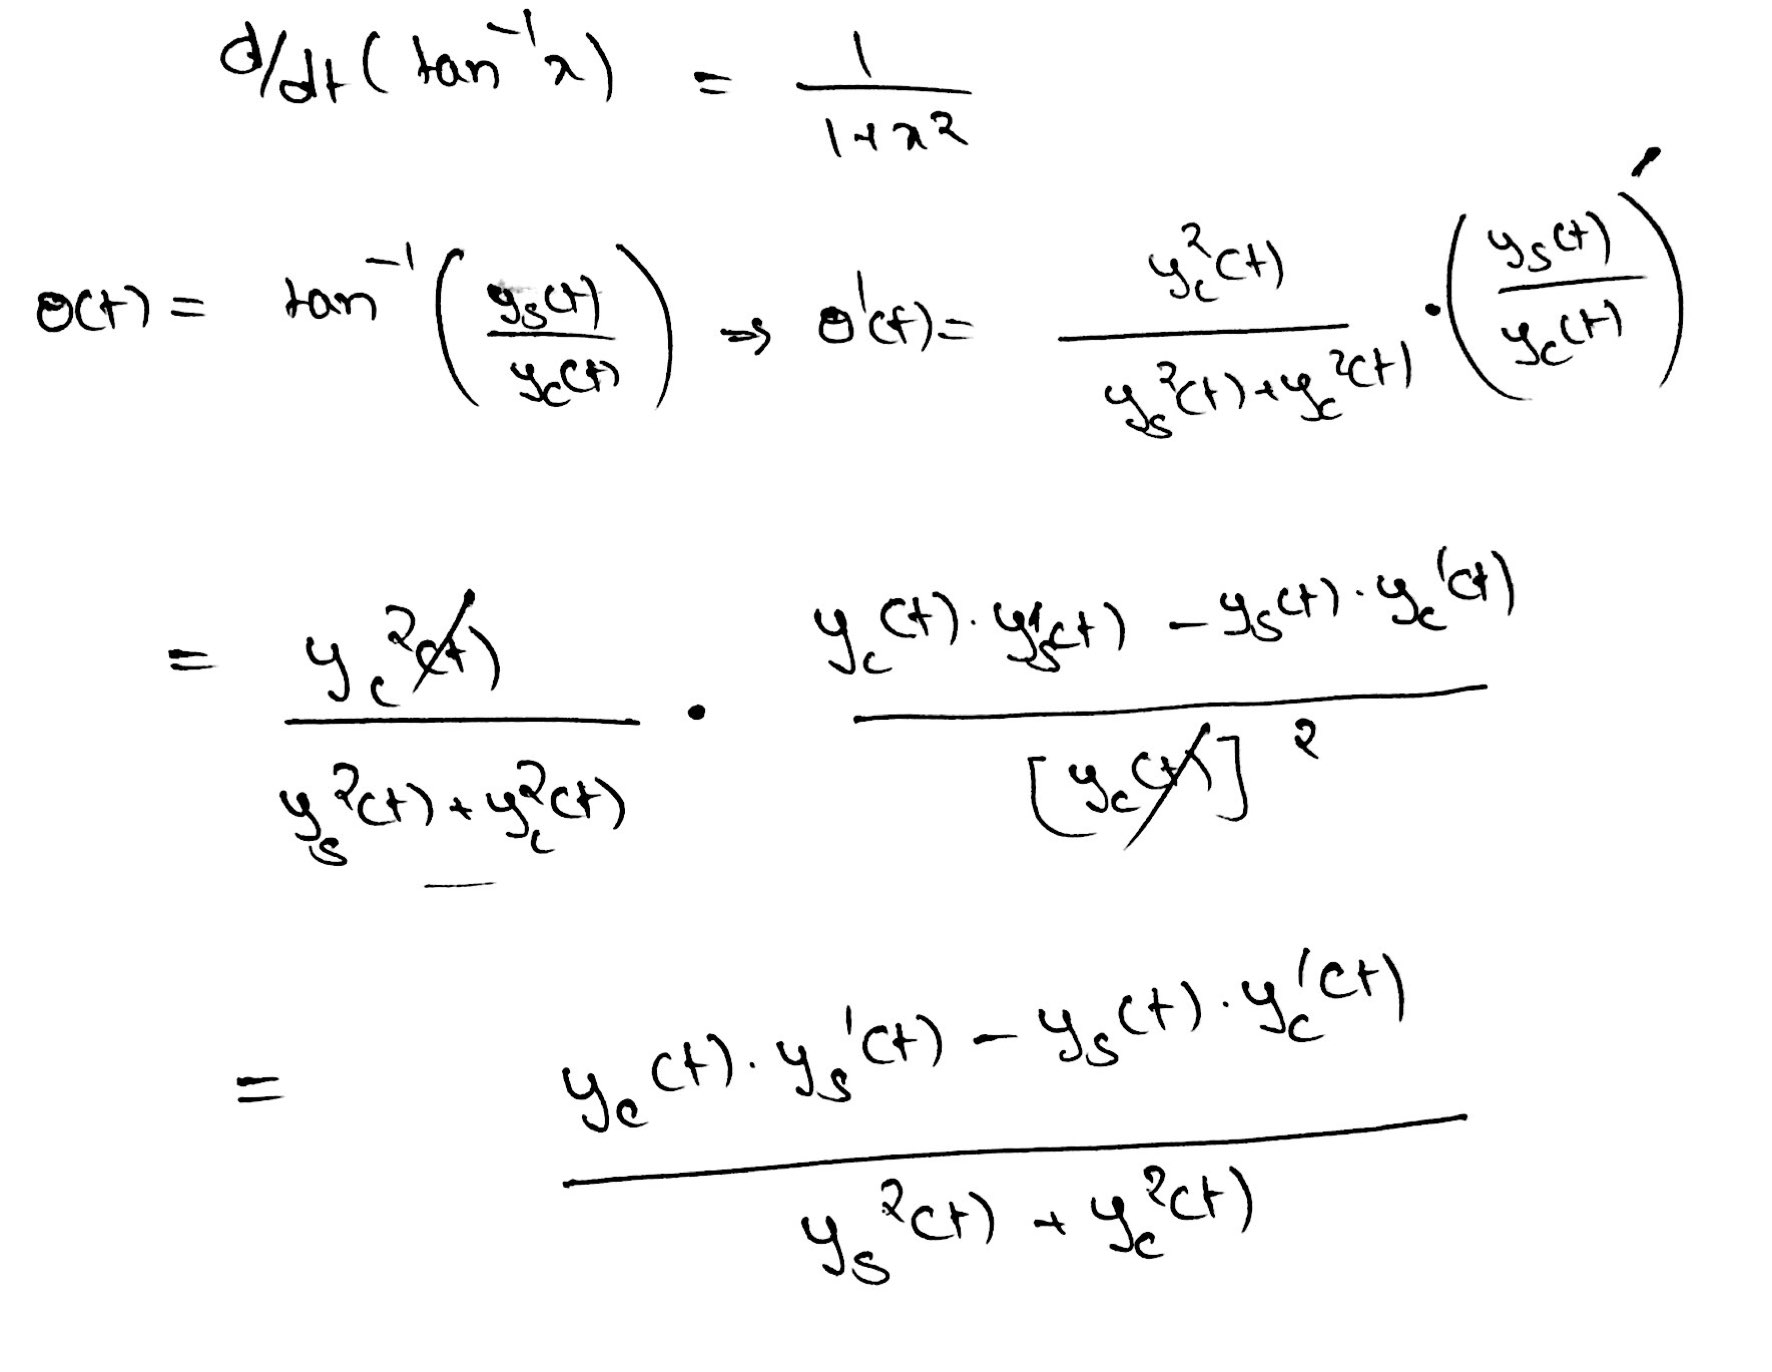 d/dt ( tan⁻¹ x ) = 1 / (1+x²)
θ(t) = tan⁻¹ ( y_s(t) / y_c(t) ) ⇒ θ'(t) = y_c²(t) / (y_s²(t) + y_c²(t)) · ( y_s(t) / y_c(t) )'
= y_c²(t) / (y_s²(t) + y_c²(t)) · (y_c(t) · y_s'(t) − y_s(t) · y_c'(t)) / [y_c(t)]²
= (y_c(t) · y_s'(t) − y_s(t) · y_c'(t)) / (y_s²(t) + y_c²(t))